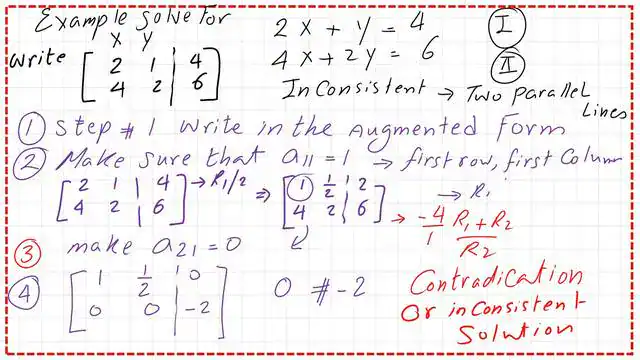 Example solve for 2x + y = 4 I
x y 4x + 2y = 6 II
write [ 2 1 | 4
4 2 | 6 ] InConsistent → Two parallel Lines
① Step # 1 Write in the Augmented Form
② Make sure that a11 = 1 → first row, first Column
[ 2 1 | 4 ] → R1/2 ⇒ [ 1 1/2 | 2 ] → R1
[ 4 2 | 6 ] [ 4 2 | 6 ] → -4/1 R1 + R2 / R2
③ make a21 = 0
④ [ 1 1/2 | 0 ]
[ 0 0 | -2 ] 0 # -2
Contradication
Or inConsistent
Solution